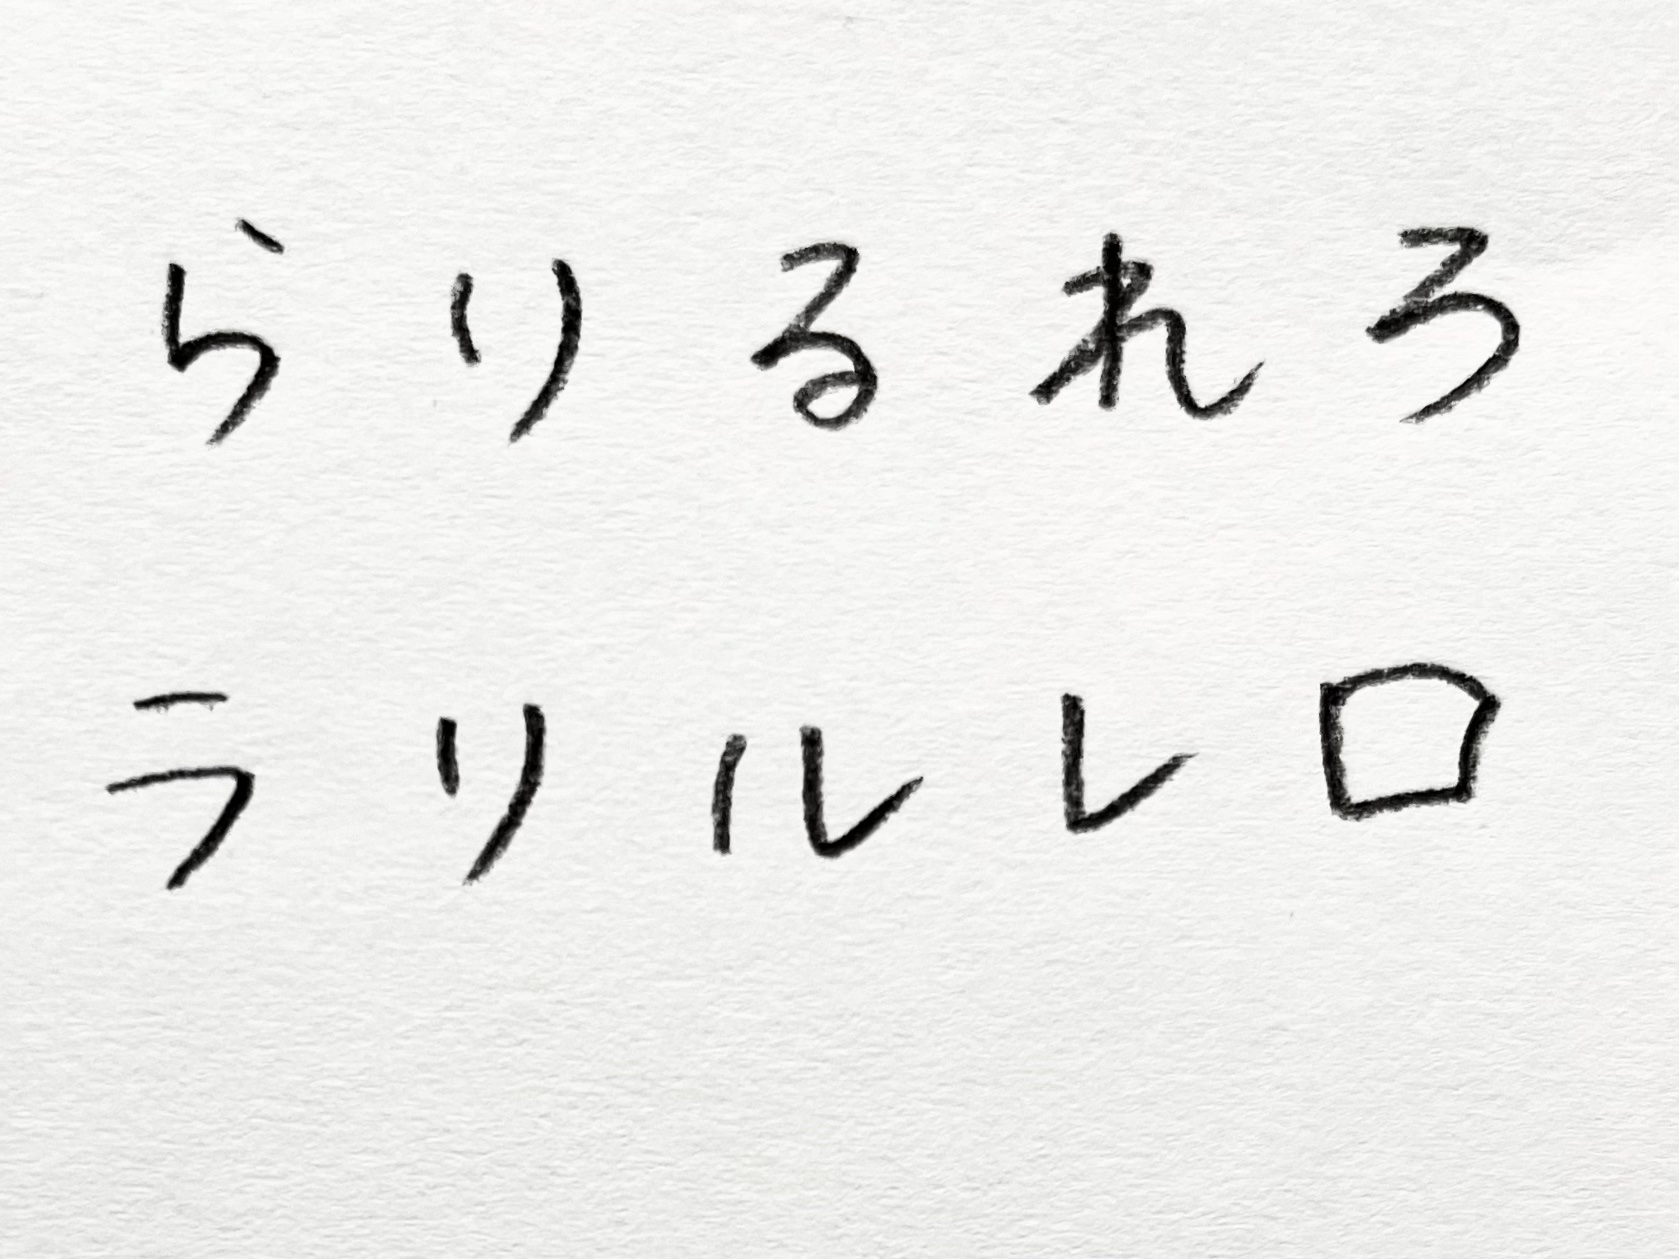 らりるれろ
ラリルレロ